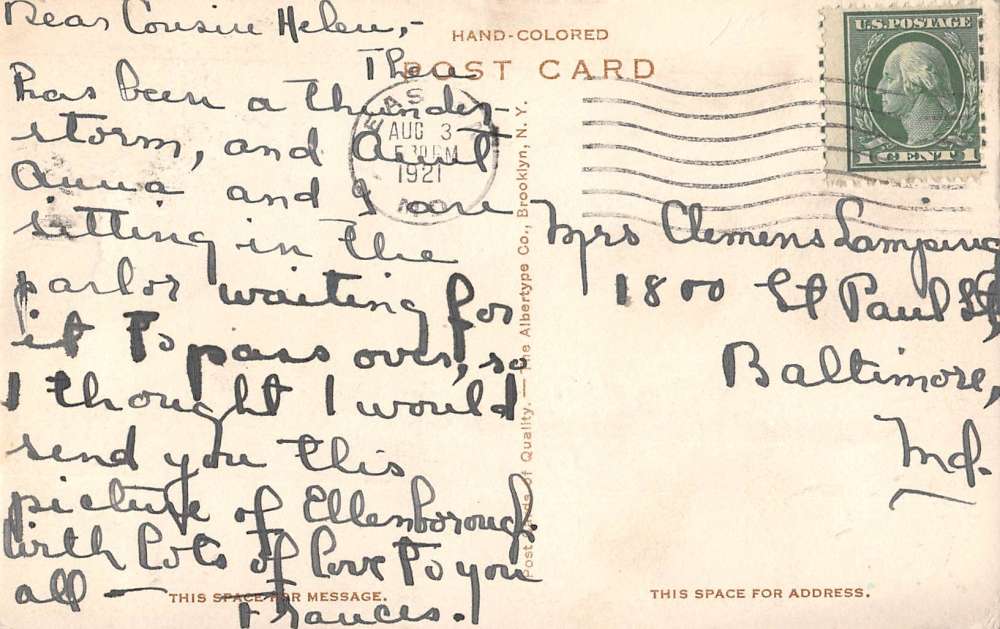 Dear Cousin Helen,-
There
has been a thunder-
storm, and Aunt
Anna and I are
sitting in the
parlor waiting for
it to pass over, so
I thought I would
send you this
picture of Ellenborough.
With lots of love to you
all —
Frances.
HAND-COLORED
POST CARD
EAS
AUG 3
5 30 PM
1921
MD.
U.S. POSTAGE
1 CENT 1
Post Cards of Quality. — The Albertype Co., Brooklyn, N. Y.
Mrs Clemens Lamping
1800 St Paul St,
Baltimore,
Md.
THIS SPACE FOR MESSAGE.
THIS SPACE FOR ADDRESS.